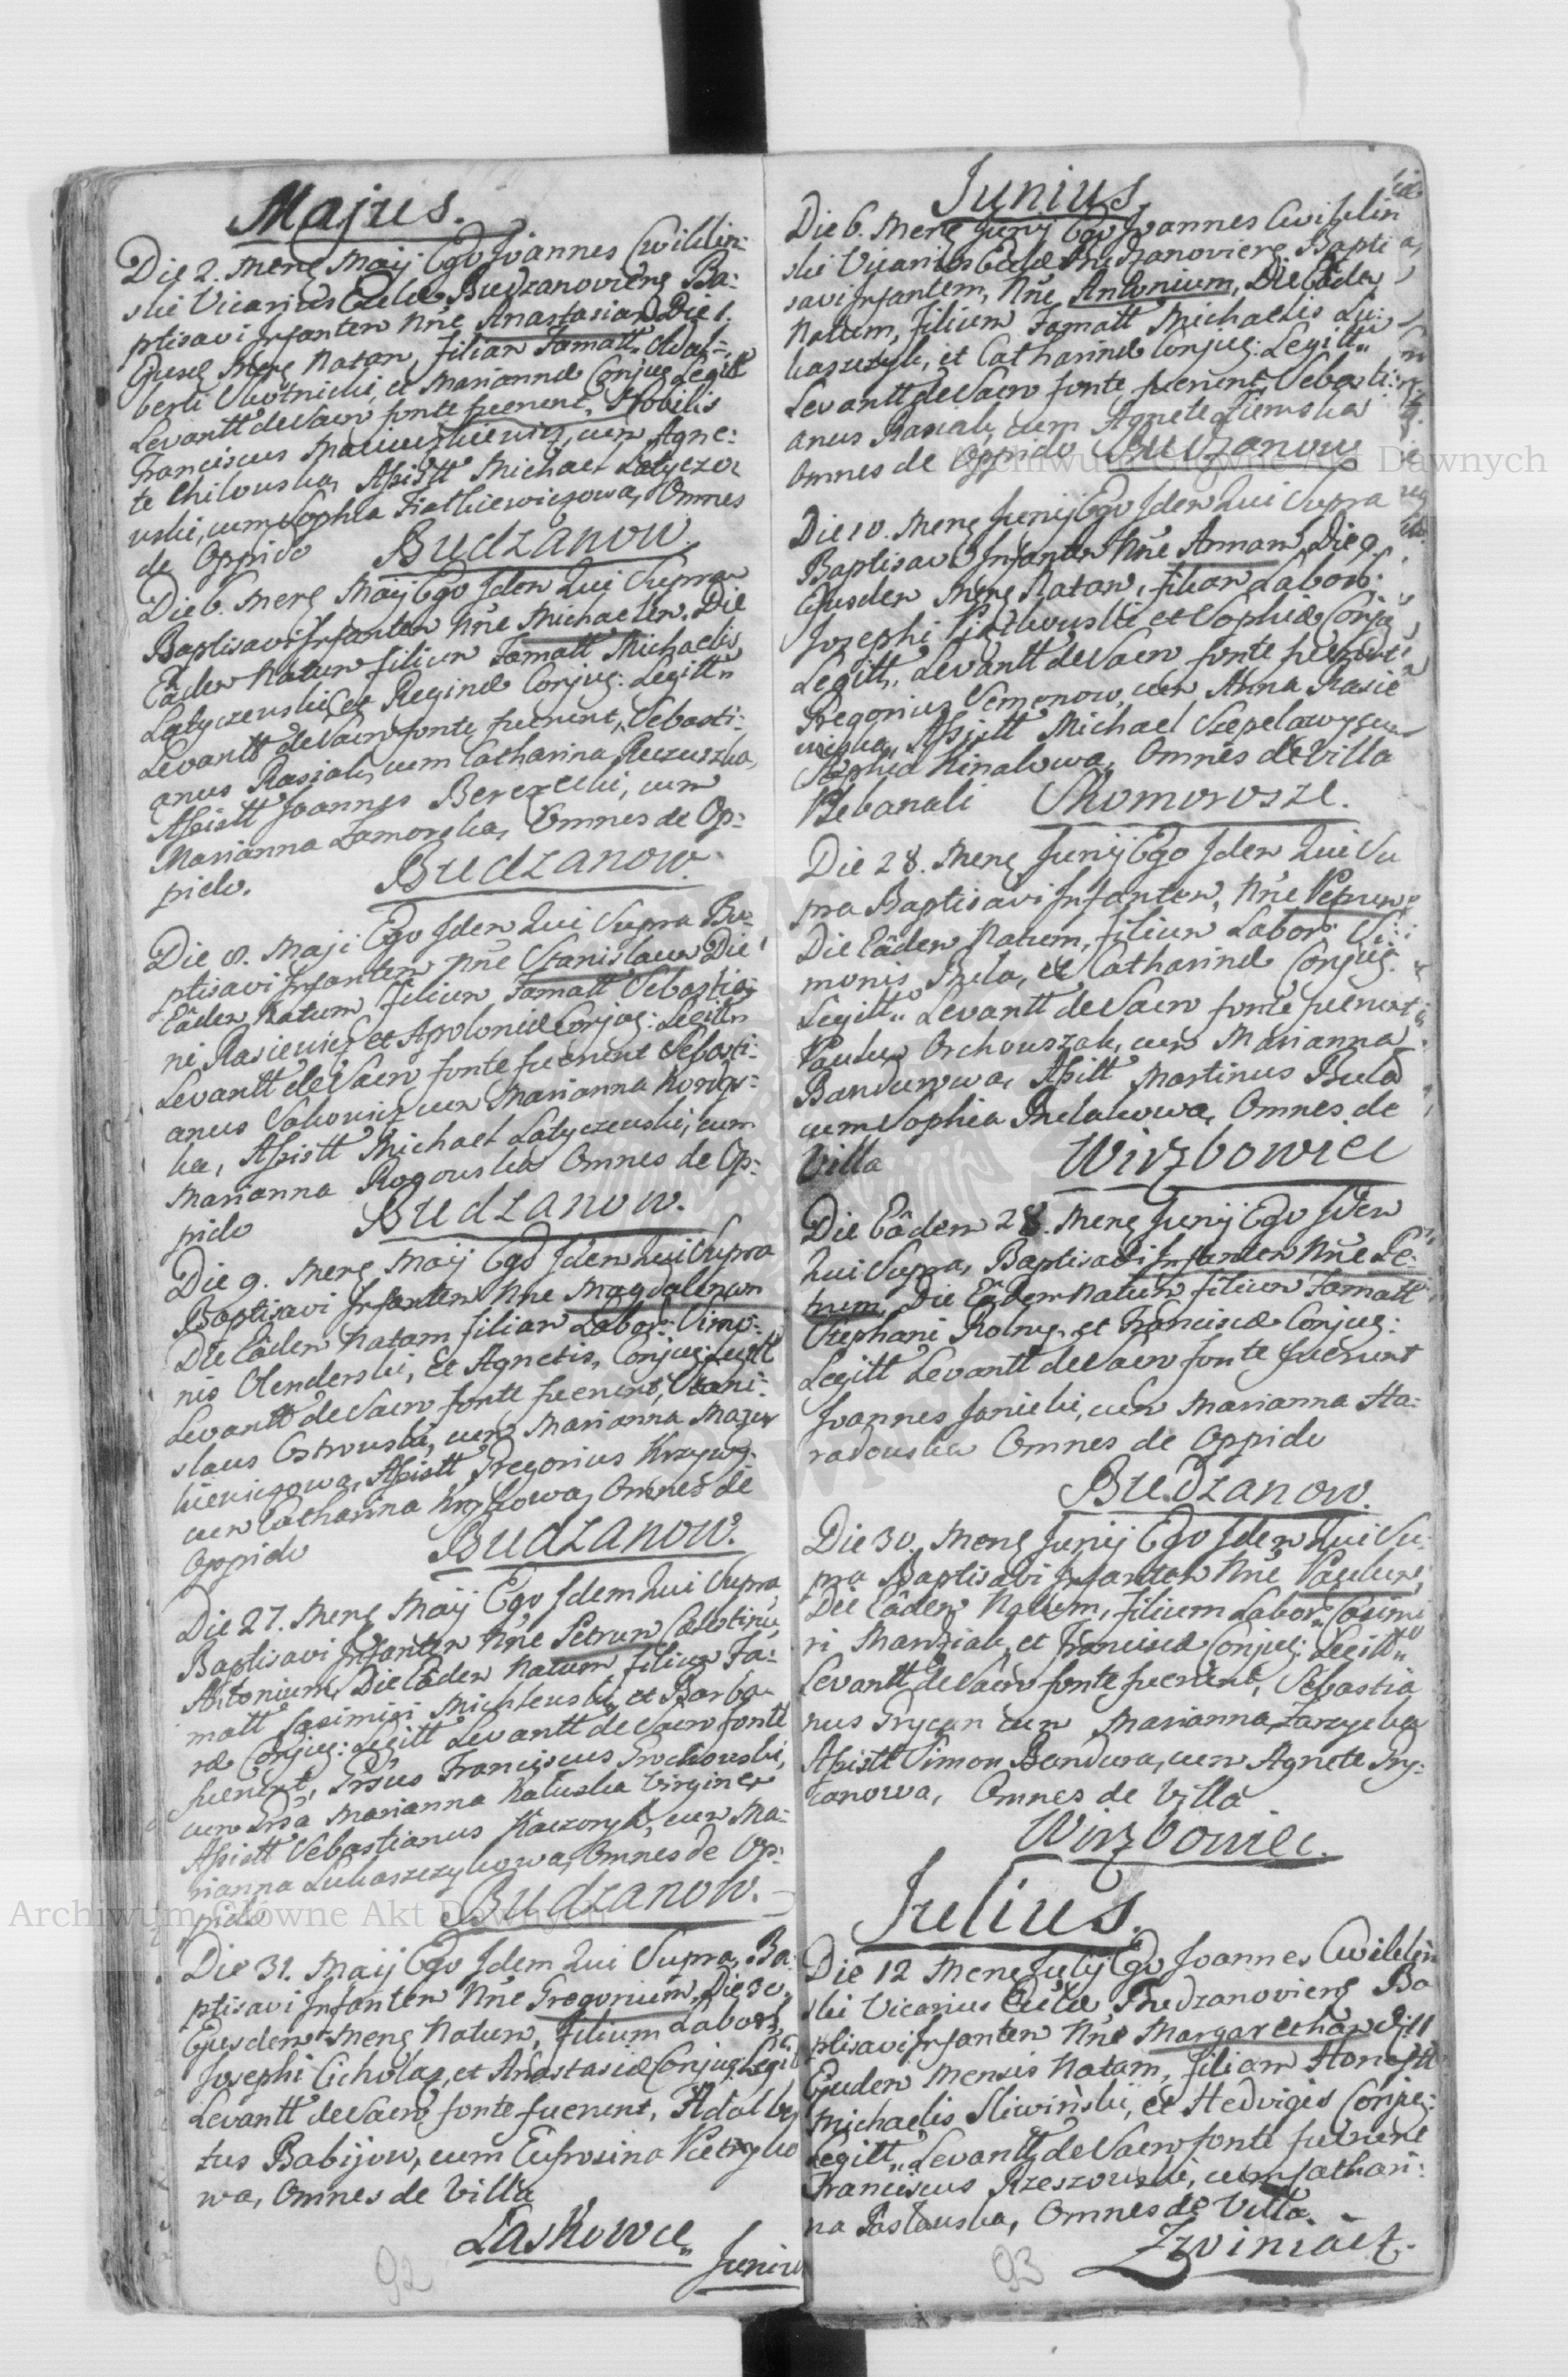 Majus.
Die 2. Mens Maij Ego Joannes Cwiklin:
ski Vicarius Eccla Budzanoviens Ba:
ptisavi Infantem Nne Anastasiam Die 1.
Ejusd Mens Natam, filiam Famatt Adal:
berti et Mariannæ Conjug Legitt
Levantt de Sacro fonte fuerunt, Nobilis
Franciscus cum Agne:
te Assistt Michael Latyczo
wski, cum Sophia Omnes
de Oppido Budzanow.
Die 6. Mens Maij Ego Idem Qui Supra
Baptisavi Infantem Nne Michaelem, Die
Eâdem Natum filium Famatt Michaelis
Latyczewski et Reginæ Conjug: Legitt
Levantt de Sacro fonte fuerunt, Sebasti:
anus Rasiak, cum Catharina
Assistt Joannes Berezecki, cum
Marianna Zamorska, Omnes de Op:
pido. Budzanow.
Die 8. Maji Ego Idem Qui Supra Ba:
ptisavi Infantem Nne Stanislaum Die
Eâdem Natum filium Famatt Sebastia:
ni Rasiewicz et Apoloniæ Conjug: Legitt
Levantt de Sacro fonte fuerunt Sebasti:
anus cum Marianna
ka, Assistt Michael Latyczewski, cum
Marianna Rogowska Omnes de Op:
pido Budzanow.
Die 9. Mens Maij Ego Idem Qui Supra
Baptisavi Infantem Nne Magdalenam
Die Eâdem Natam filiam Labor: Simo:
nis Olenderski, et Agnetis, Conjug: Legitt
Levantt de Sacro fonte fuerunt, Stani:
slaus Ostrowski, cum Marianna Mazur
kiewiczowa, Assistt Gregorius
cum Catharina Omnes de
Oppido Budzanow.
Die 27. Mens Maij Ego Idem Qui Supra
Baptisavi Infantem Nne Petrum Cælestinu,
Antonium, Die Eâdem Natum filium Fa:
matt Casimiri et Barba
ræ Conjug: Legitt Levantt de Sacro fonte
fuerunt, Grsus Franciscus Grochowski,
cum Grsa Marianna Virgine
Assistt Sebastianus cum Ma:
rianna Lukaszczykowa, Omnes de Op:
pido Budzanow.
Die 31. Maij Ego Idem Qui Supra, Ba:
ptisavi Infantem Nne Gregorium, Die 30.
Ejusdem Mens Natum, filium Labors
Josephi et Anastasiæ Conjug Legit
Levantt de Sacro fonte fuerunt, Adalber
tus Babijow, cum Eufrosina
wa, Omnes de Villa
Laskowce
Junius
92
Junius.
Die 6. Mens Junij Ego Joannes Cwiklin
ski Vicarius Ecclæ Budzanoviens Bapti
savi Infantem, Nne Antonium, Die Eâdem
Natum, filium Famatt Michaelis Lu:
kaszczyk, et Catharinæ Conjug: Legitt
Levantt de Sacro fonte, fuerunt, Sebasti:
anus Rasiak, cum Agnete Ziemska
Omnes de Oppido Budzanow
Die 10. Mens Junij Ego Idem Qui Supra
Baptisavi Infantem Nne Annam Die 9
Ejusdem Mens Natam, filiam Labors:
Jozephi et Sophiæ Conjug
Legitt, Levantt de Sacro fonte fuerunt
Gregorius Semenow, cum Anna Rasie
wiczka, Assistt Michael
Sophia Omnes de Villa
Plebanali Skomorosze.
Die 28. Mens Junij Ego Idem Qui Su
pra Baptisavi Infantem, Nne Petrum,
Die Eâdem Natum, filium Labor: Si:
monis et Catharinæ Conjug:
Legitt Levantt de Sacro fonte fuerunt
Paulus Orchowszak, cum Marianna
Bandurowa, Assitt Martinus
cum Sophia Omnes de
Villa Wirzbowiec
Die Eâdem 28. Mens Junij Ego Idem
Qui Supra, Baptisavi Infantem Nne Pe:
trum, Die Eâdem Natum filium Famatt
Stephani Rolny, et Franciscæ Conjug:
Legitt Levantt de Sacro fonte fuerunt
Joannes Janicki, cum Marianna Ha:
radowska Omnes de Oppido
Budzanow.
Die 30. Mens Junij Ego Idem Qui Su:
pra Baptisavi Infantem Nne Paulum,
Die Eâdem Natum, filium Labor: Casimi
ri Marziak et Franciscæ Conjug: Legitt
Levantt de Sacro fonte fuerunt, Sebastia
nus Grycan cum Marianna Zarzycka
Assistt Simon Bandura, cum Agnete Gry:
canowa, Omnes de Villa
Wirzbowiec.
Julius.
Die 12 Mens Julij Ego Joannes Cwiklin
ski Vicarius Eccla Budzanoviens Ba
ptisavi Infantem Nne Margaretham Die 11
Ejusdem Mensis Natam, filiam Honestt
Michaelis Sliwiński, et Hedvigis Conjug:
Legitt Levantt de Sacro fonte fuerunt
Franciscus Rzeszowski, cum Cathari:
na Omnes de Villa.
Zwiniacz.
93
Archiwum Główne Akt Dawnych
Archiwum Główne Akt Dawnych